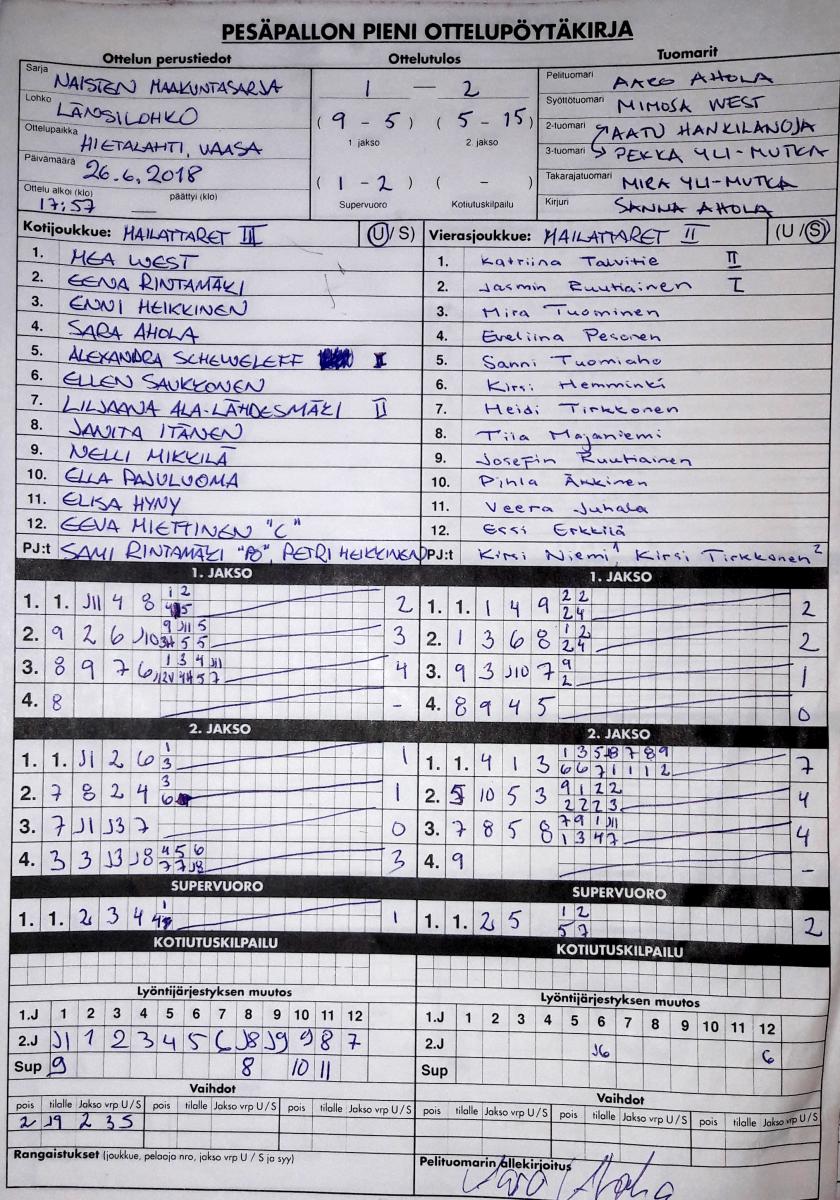 PESÄPALLON PIENI OTTELUPÖYTÄKIRJA
Ottelun perustiedot
Sarja NAISTEN MAAKUNTASARJA
Lohko LÄNSILOHKO
Ottelupaikka HIETALAHTI, VAASA
Päivämäärä 26.6.2018
Ottelu alkoi (klo) päättyi (klo)
17:57 —
Ottelutulos
1 — 2
( 9 - 5 ) ( 5 - 15 )
1 jakso 2. jakso
( 1 - 2 ) ( - )
Supervuoro Kotiutuskilpailu
Tuomarit
Pelituomari AARO AHOLA
Syöttötuomari MIMOSA WEST
2-tuomari AATU HANKILANOJA
3-tuomari PEKKA YLI-MUTKA
Takarajatuomari MIRA YLI-MUTKA
Kirjuri SANNA AHOLA
Kotijoukkue: MAILATTARET III (U/S)
1. MEA WEST
2. EENA RINTAMÄKI
3. ENNI HEIKKINEN
4. SARA AHOLA
5. ALEXANDRA SCHEWELEFF I
6. ELLEN SAUKKONEN
7. LILJAANA ALA-LÄHDESMÄKI II
8. JANITA ITÄNEN
9. NELLI MIKKILÄ
10. ELLA PAJULUOMA
11. ELISA HYNY
12. EEVA MIETTINEN "C"
PJ:t SAMI RINTAMÄKI "PO", PETRI HEIKKINEN
Vierasjoukkue: MAILATTARET II (U/S)
1. Katriina Talvitie II
2. Jasmin Ruutiainen I
3. Mira Tuominen
4. Eveliina Pesonen
5. Sanni Tuomiaho
6. Kirsi Hemminki
7. Heidi Tirkkonen
8. Tiia Majaniemi
9. Josefin Ruutiainen
10. Pihla Äkkinen
11. Veera Juhala
12. Essi Erkkilä
PJ:t Kirsi Niemi 1, Kirsi Tirkkonen 2
1. JAKSO
1. 1. J11 4 8 1 2 5 2
2. 9 2 6 J10 9 J11 5 5 5 3
3. 8 9 7 6 1 3 4 J11 5 7 4
4. 8 -
2. JAKSO
1. 1. J1 2 6 1 3 1
2. 7 8 2 4 3 6 1
3. 7 J1 J3 7 0
4. 3 3 J3 J8 4 5 6 7 7 J8 3
SUPERVUORO
1. 1. 2 3 4 1 1
KOTIUTUSKILPAILU
1. JAKSO
1. 1. 1 4 9 2 2 2 4 2
2. 1 3 6 8 1 2 2 4 2
3. 9 3 J10 7 9 2 1
4. 8 9 4 5 0
2. JAKSO
1. 1. 4 1 3 1 3 5 8 7 8 9 6 6 7 1 1 1 2 7
2. 5 10 5 3 9 1 2 2 2 2 2 3 4
3. 7 8 5 8 7 9 1 J11 1 3 4 7 4
4. 9 -
SUPERVUORO
1. 1. 2 5 1 2 5 7 2
KOTIUTUSKILPAILU
Lyöntijärjestyksen muutos
1.J 1 2 3 4 5 6 7 8 9 10 11 12
2.J J1 1 2 3 4 5 6 J8 J9 9 8 7
Sup 9 8 10 11
Vaihdot
pois tilalle Jakso vrp U / S pois tilalle Jakso vrp U / S pois tilalle Jakso vrp U / S
2 J9 2 3 S
Rangaistukset (joukkue, pelaaja nro, jakso vrp U / S ja syy)
Lyöntijärjestyksen muutos
1.J 1 2 3 4 5 6 7 8 9 10 11 12
2.J J6 6
Sup
Vaihdot
pois tilalle Jakso vrp U / S pois tilalle Jakso vrp U / S pois tilalle Jakso vrp U / S
Pelituomarin allekirjoitus
Aaro Ahola